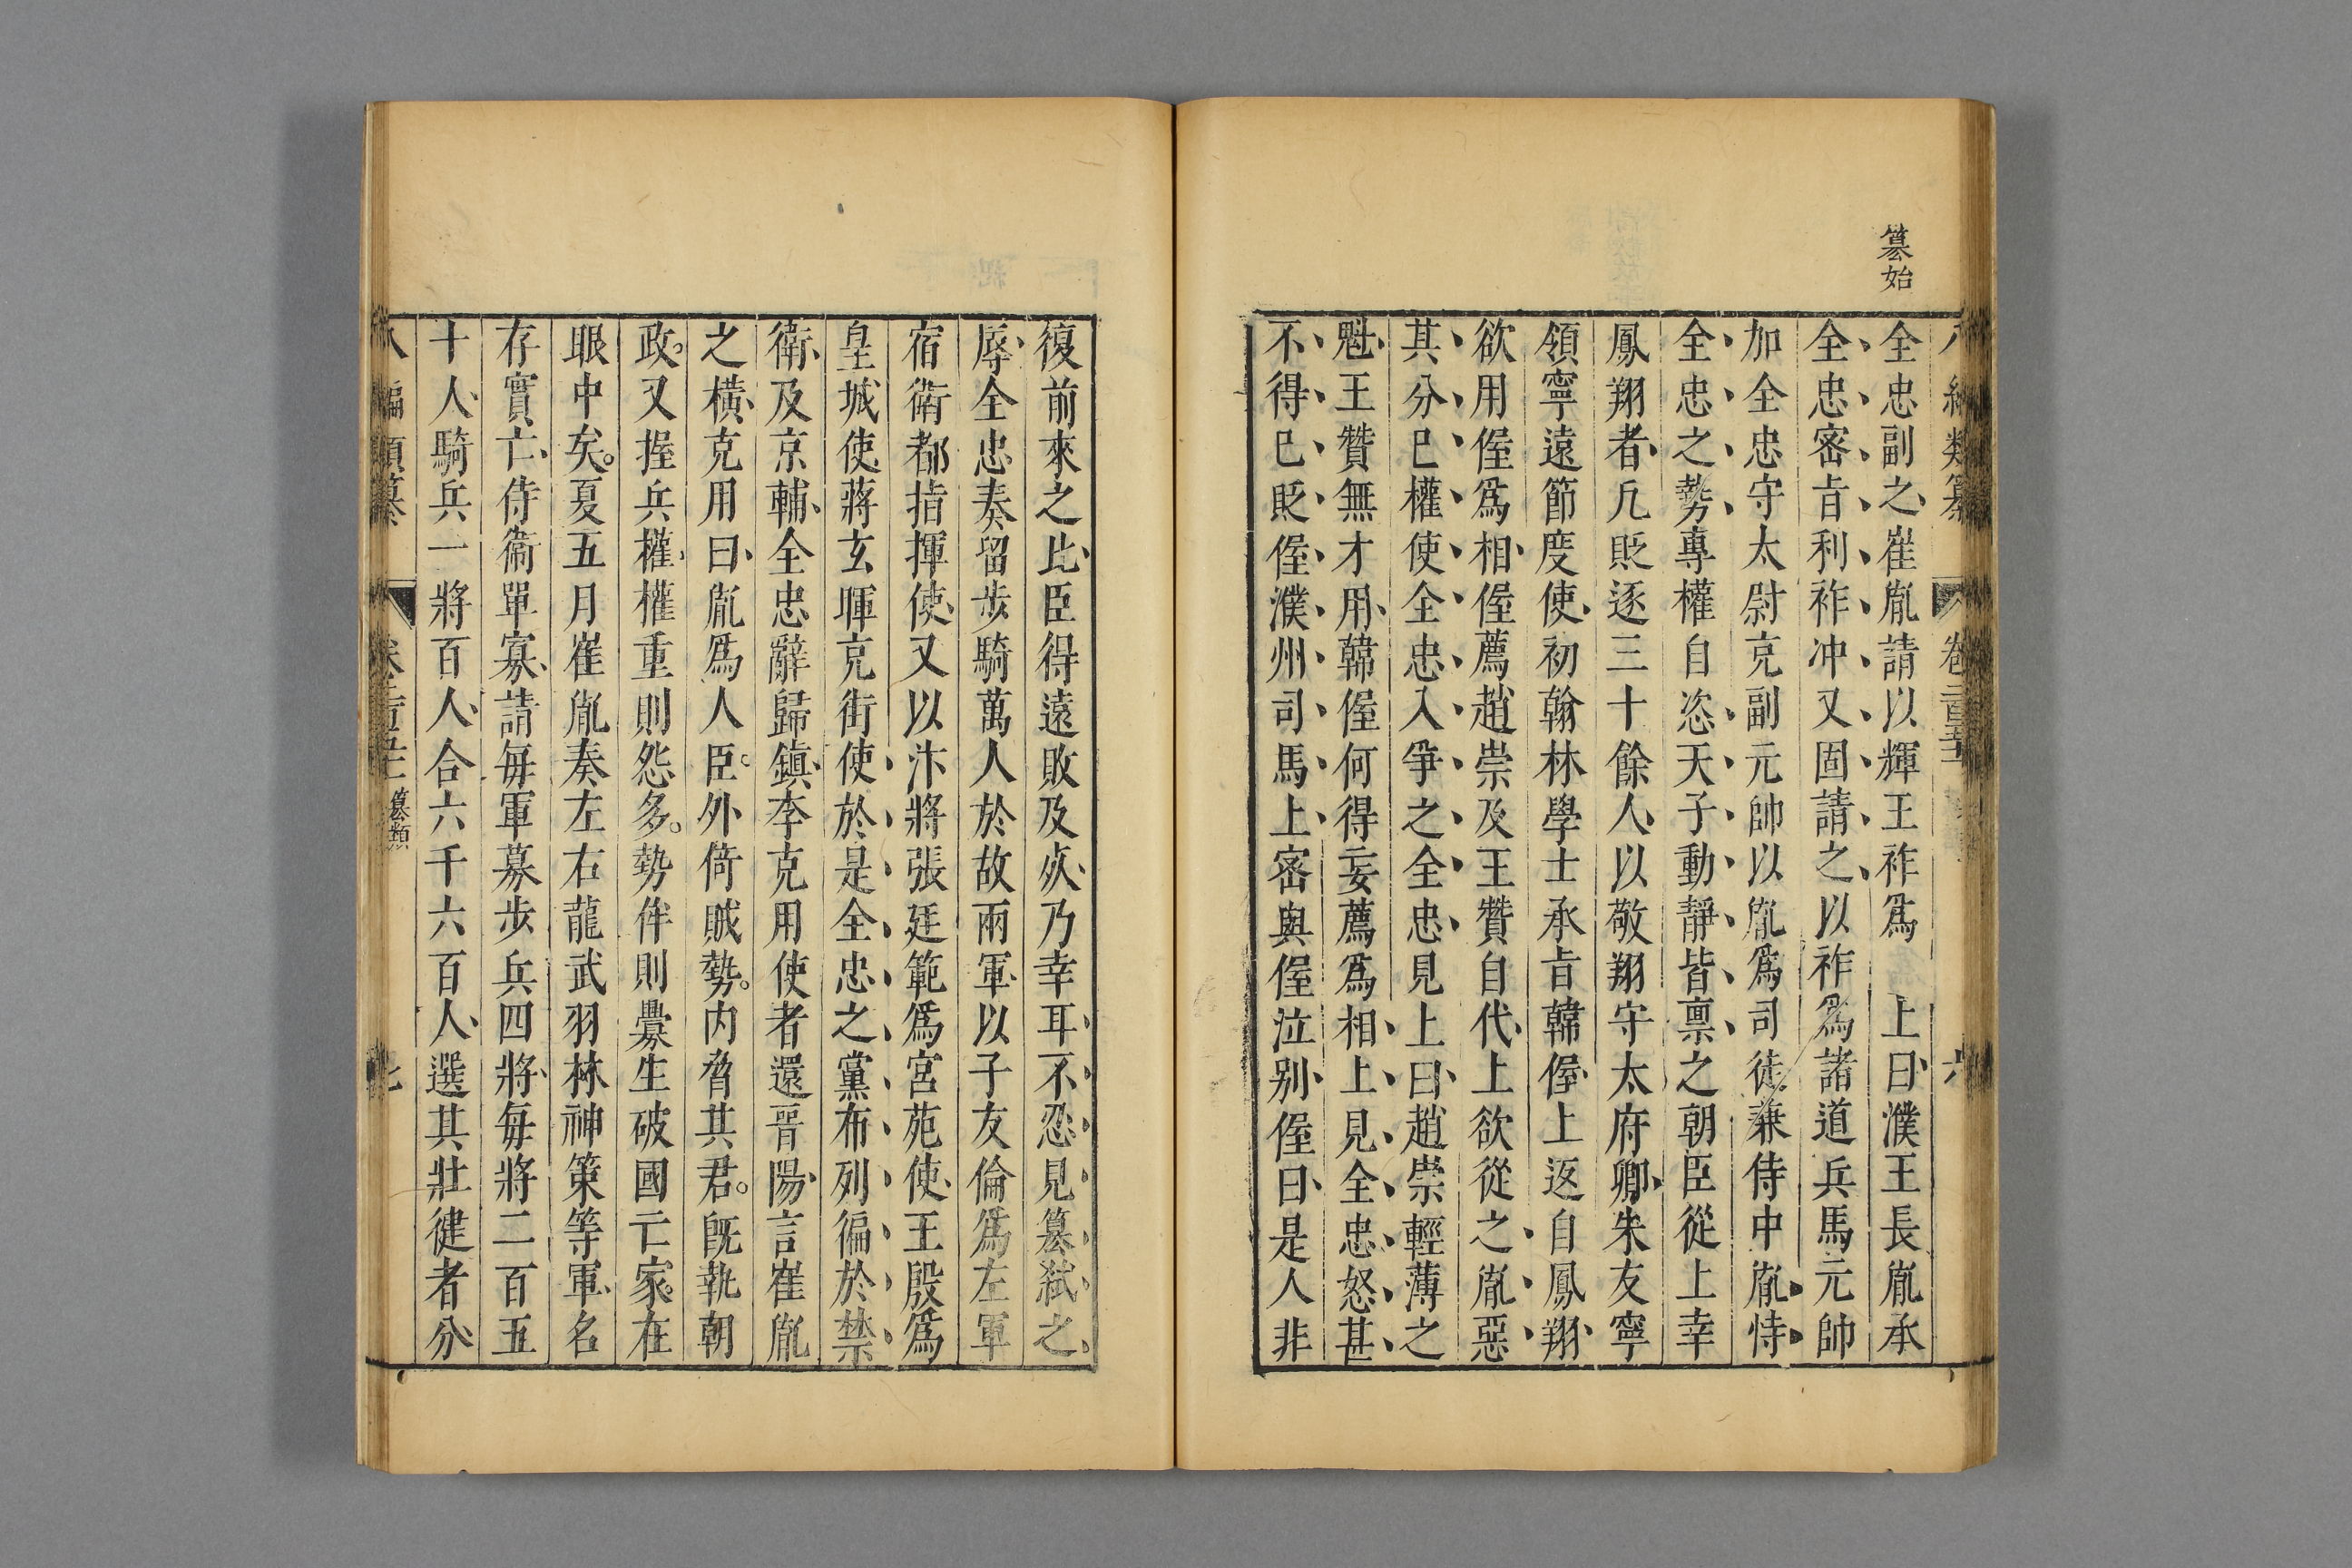 篡始
全忠副之崔胤請以輝王祚爲 上曰濮王長胤承
全忠密旨利祚冲又固請之以祚爲諸道兵馬元帥
加全忠守太尉充副元帥以胤爲司徒兼侍中胤恃
全忠之勢專權自恣天子動靜皆禀之朝臣從上幸
鳳翔者凡貶逐三十餘人以敬翔守太府卿朱友寧
領寧遠節度使初翰林學士承旨韓偓上返自鳳翔
欲用偓爲相偓薦趙崇及王贊自代上欲從之胤惡
其分已權使全忠入爭之全忠見上曰趙崇輕薄之
魁王贊無才用韓偓何得妄薦爲相上見全忠怒甚
不得已貶偓濮州司馬上密與偓泣别偓曰是人非
復前來之比臣得遠敗及处乃幸耳不忍見篡弑之
辱全忠奏留步騎萬人於故兩軍以子友倫爲左軍
宿衛都指揮使又以汴將張廷範爲宮苑使王殷爲
皇城使蔣玄暉充街使於是全忠之黨布列徧於禁
衛及京輔全忠辭歸鎮李克用使者還晉陽言崔胤
之横克用曰胤爲人臣外倚賊勢内脅其君既執朝
政又握兵權權重則怨多勢侔則釁生破國亡家在
眼中矣夏五月崔胤奏左右龍武羽林神策等軍名
存實亡侍衛單寡請每軍募步兵四將每將二百五
十人騎兵一將百人合六千六百人選其壯健者分
八編類纂 篡類 七